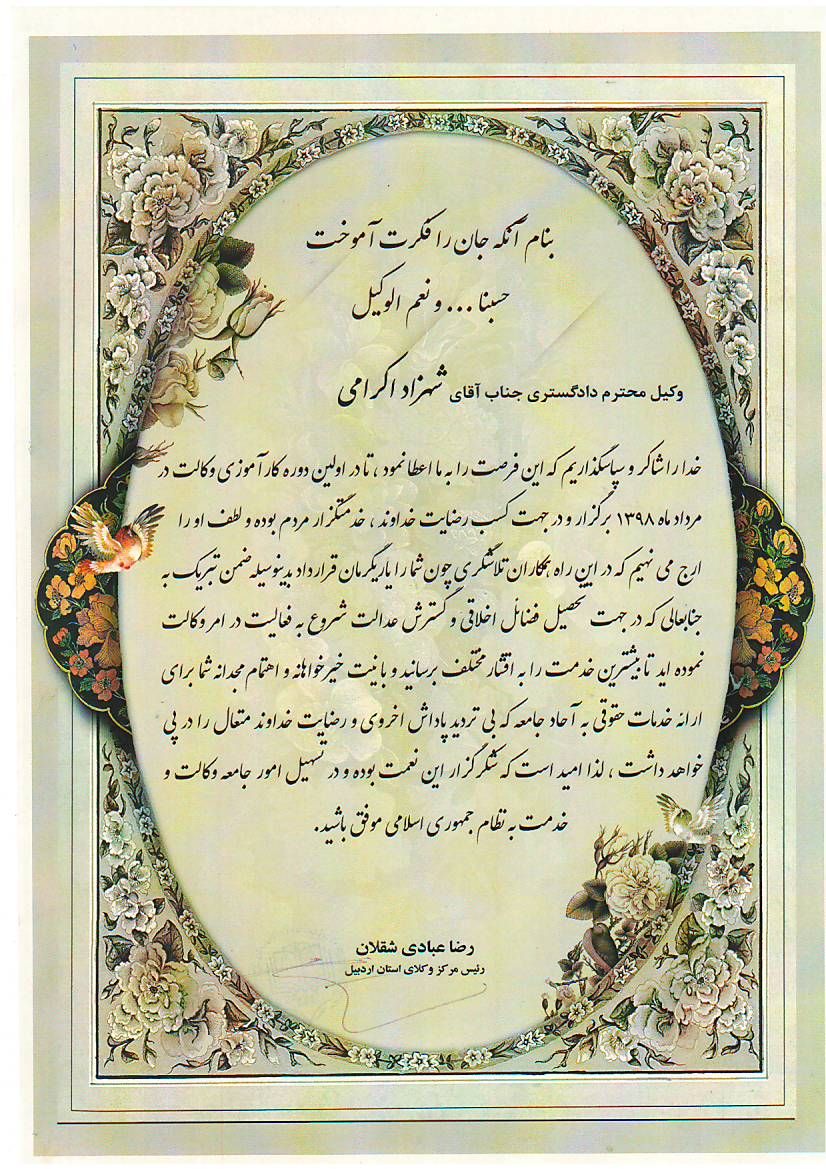 بنام آنکه جان را فکرت آموخت
حسبنا ... و نعم الوکیل
وکیل محترم دادگستری جناب آقای شهزاد اکرامی
خدا را شاکر و سپاسگذاریم که این فرصت را به ما اعطا نمود ، تا در اولین دوره کارآموزی وکالت در
مرداد ماه ۱۳۹۸ برگزار و در جهت کسب رضایت خداوند ، خدمتگزار مردم بوده و لطف او را
ارج می نهیم که در این راه همکاران تلاشگری چون شما را یاریگرمان قرار داد بدینوسیله ضمن تبریک به
جنابعالی که در جهت تحصیل فضائل اخلاقی و گسترش عدالت شروع به فعالیت در امر وکالت
نموده اید تا بیشترین خدمت را به اقشار مختلف برسانید و با نیت خیرخواهانه و اهتمام مجدانه شما برای
ارائه خدمات حقوقی به آحاد جامعه که بی تردید پاداش اخروی و رضایت خداوند متعال را در پی
خواهد داشت ، لذا امید است که شکرگزار این نعمت بوده و در تسهیل امور جامعه وکالت و
خدمت به نظام جمهوری اسلامی موفق باشید.
رضا عبادی شقلان
رئیس مرکز وکلای استان اردبیل